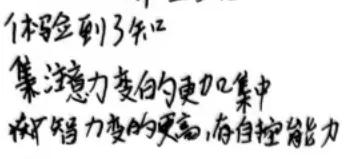 体验到了知
集注意力变的更加集中
智力变的更高,有自控能力